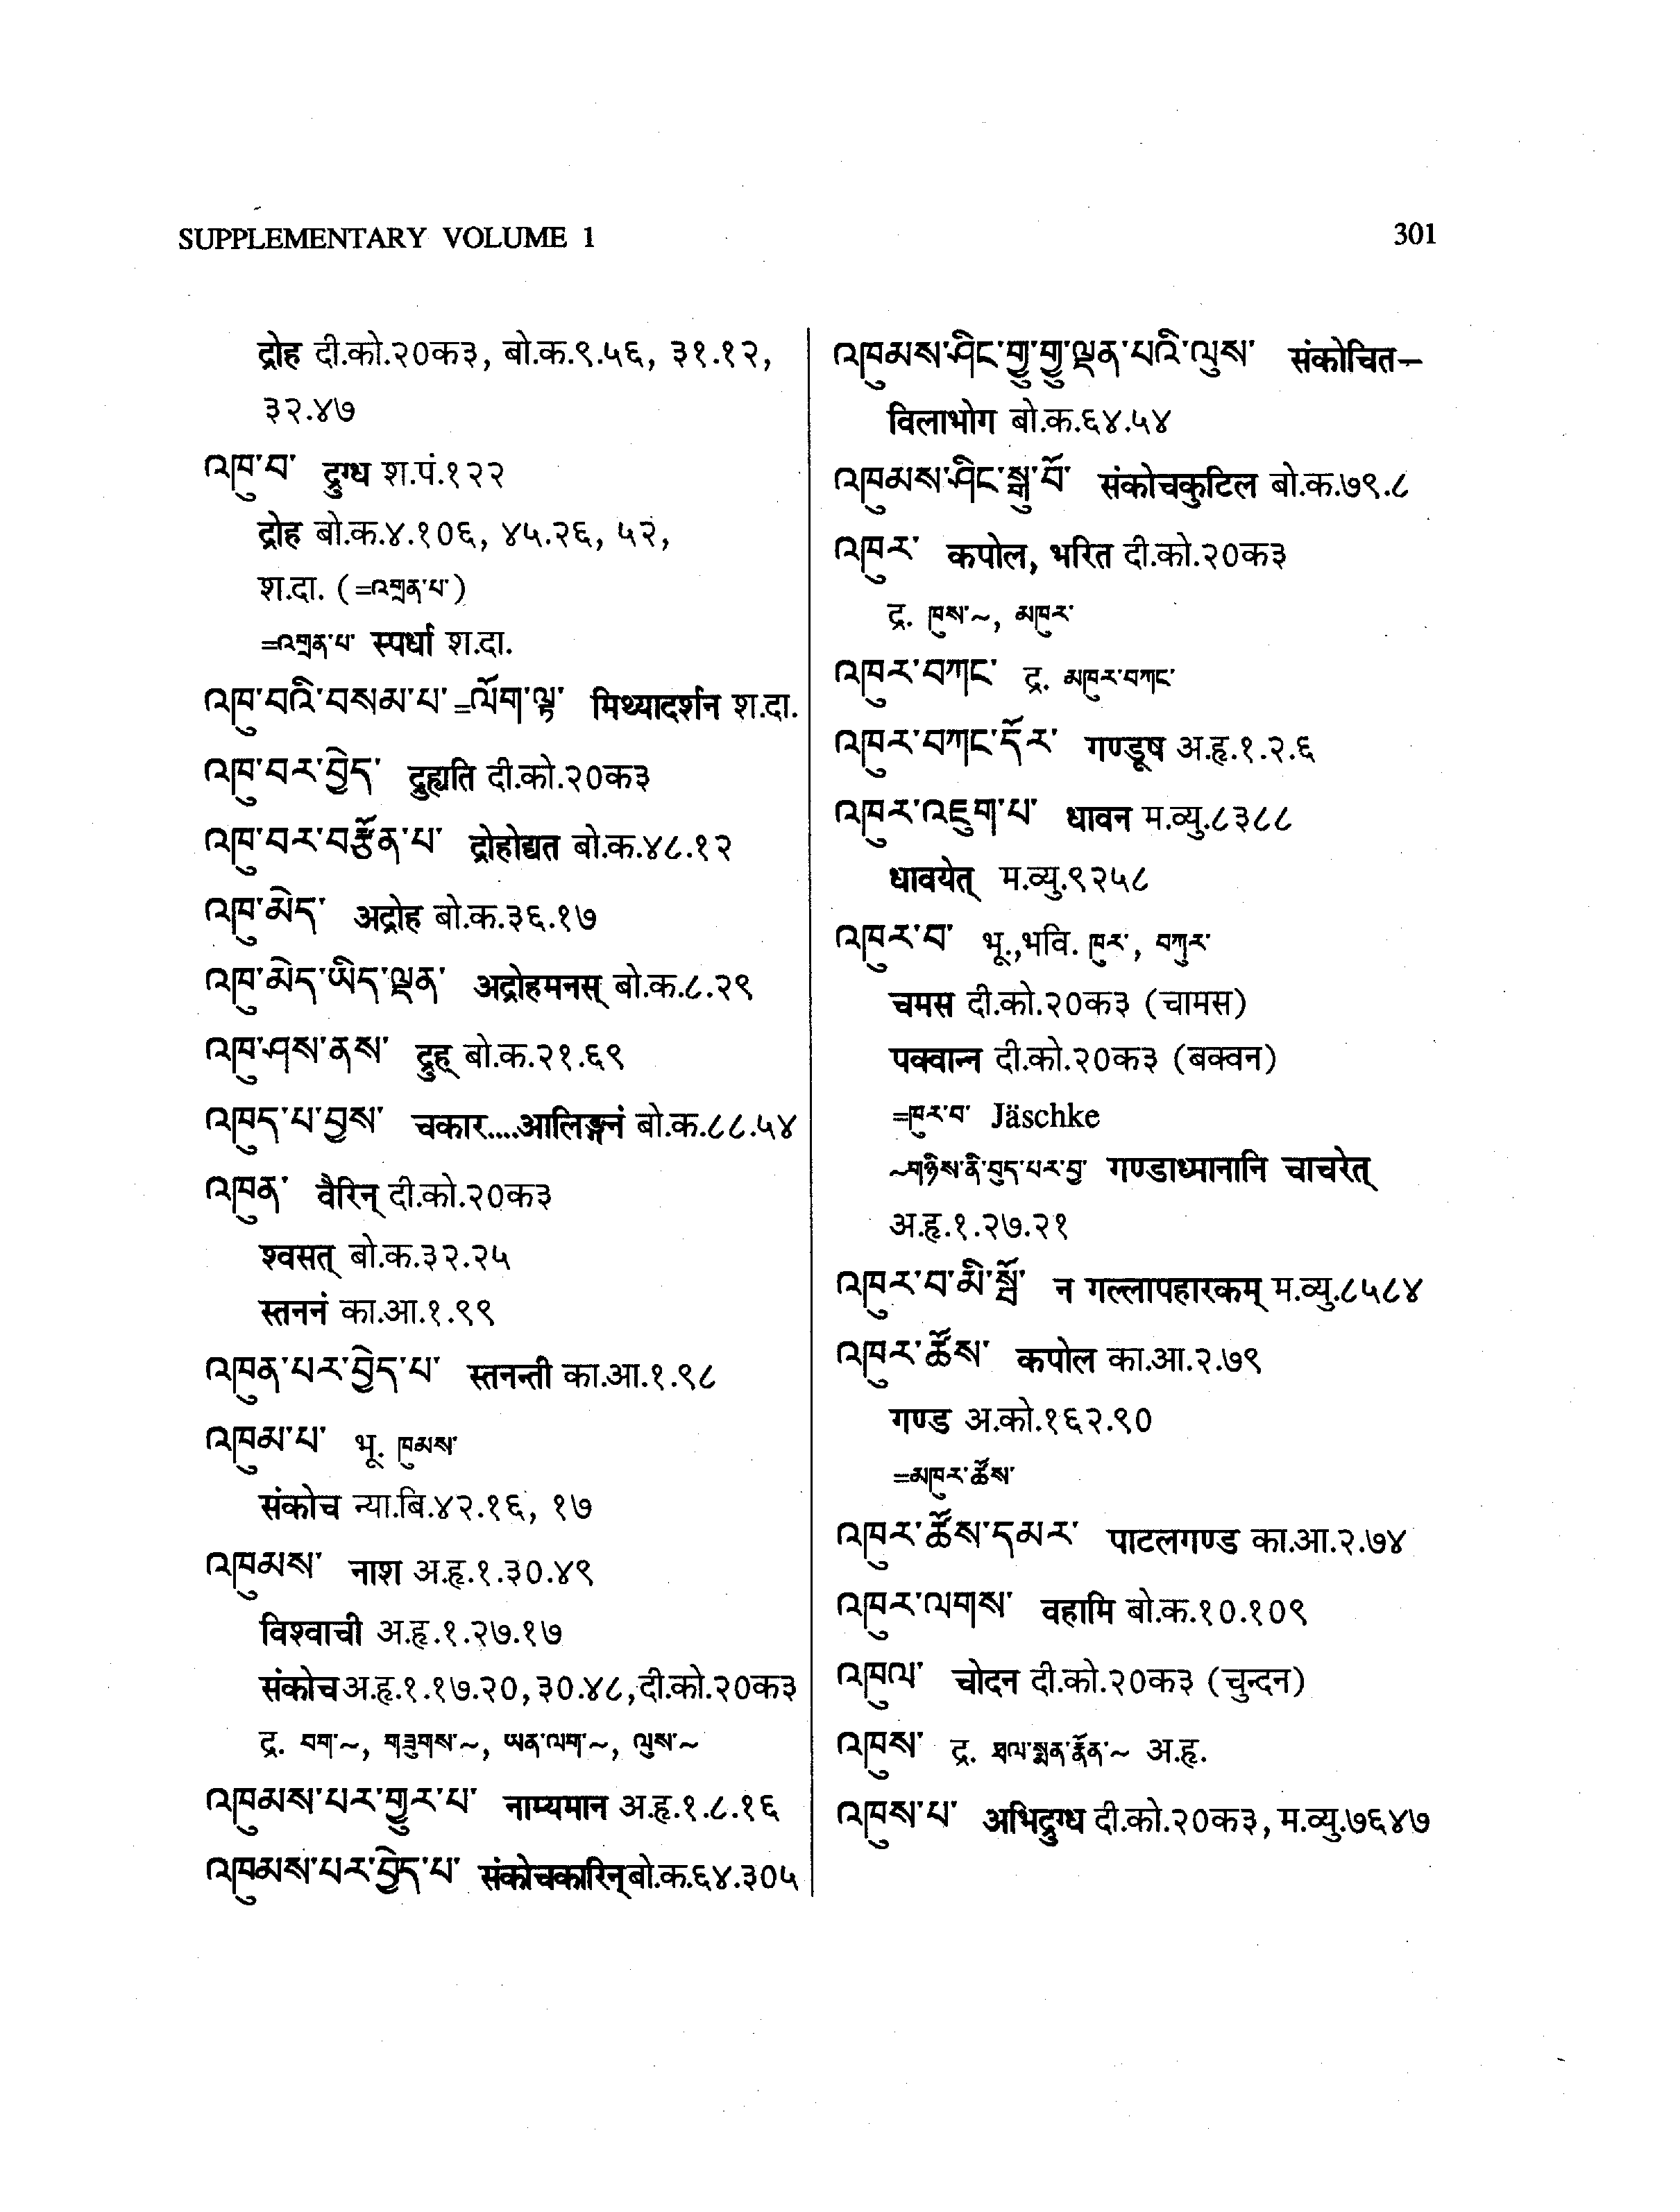 SUPPLEMENTARY VOLUME 1
301
द्रोह दी.को.२०क३, बो.क.९.५६, ३१.१२,
३२.४७
འཁུ་བ་ द्रुग्ध श.पं.१२२
द्रोह बो.क.४.१०६, ४५.२६, ५२,
श.दा. (=འགྲན་པ་)
=འགྲན་པ་ स्पर्धा श.दा.
འཁུ་བའི་བསམ་པ་=ལོག་ལྟ་ मिथ्यादर्शन श.दा.
འཁུ་བར་བྱེད་ द्रुह्यति दी.को.२०क३
འཁུ་བར་བརྩོན་པ་ द्रोहोद्यत बो.क.४८.१२
འཁུ་མེད་ अद्रोह बो.क.३६.१७
འཁུ་མེད་ཡིད་ལྡན་ अद्रोहमनस् बो.क.८.२९
འཁུ་ཤས་ནས་ द्रुह् बो.क.२१.६९
འཁུད་པ་བྱས་ चकार....आलिङ्गनं बो.क.८८.५४
འཁུན་ वैरिन् दी.को.२०क३
श्वसत् बो.क.३२.२५
स्तननं का.आ.१.९९
འཁུན་པར་བྱེད་པ་ स्तनन्ती का.आ.१.९८
འཁུམ་པ་ भू. ཁུམས་
संकोच न्या.बि.४२.१६, १७
འཁུམས་ नाश अ.हृ.१.३०.४९
विश्वाची अ.हृ.१.२७.१७
संकोच अ.हृ.१.१७.२०, ३०.४८, दी.को.२०क३
द्र. བག་~, གཟུགས་~, ཡན་ལག་~, ལུས་~
འཁུམས་པར་གྱུར་པ་ नाम्यमान अ.हृ.१.८.१६
འཁུམས་པར་བྱེད་པ་ संकोचकारिन् बो.क.६४.३०५
འཁུམས་ཤིང་གྱུ་གྱུ་ལྡན་པའི་ལུས་ संकोचित–
विलाभोग बो.क.६४.५४
འཁུམས་ཤིང་སྒུ་པོ་ संकोचकुटिल बो.क.७९.८
འཁུར་ कपोल, भरित दी.को.२०क३
द्र. ཁུས་~, མཁུར་
འཁུར་བཀང་ द्र. མཁུར་བཀང་
འཁུར་བཀང་དོར་ गण्डूष अ.हृ.१.२.६
འཁུར་འཇུག་པ་ धावन म.व्यु.८३८८
धावयेत् म.व्यु.९२५८
འཁུར་བ་ भू.,भवि. ཁུར་, བཀུར་
चमस दी.को.२०क३ (चामस)
पक्वान्न दी.को.२०क३ (बक्वन)
=ཁུར་བ་ Jäschke
~གཉིས་ནི་བུད་པར་བྱ་ गण्डाध्मानानि चाचरेत्
अ.हृ.१.२७.२१
འཁུར་བ་མི་སྦོ་ न गल्लापहारकम् म.व्यु.८५८४
འཁུར་ཚོས་ कपोल का.आ.२.७९
गण्ड अ.को.१६२.९०
=མཁུར་ཚོས་
འཁུར་ཚོས་དམར་ पाटलगण्ड का.आ.२.७४
འཁུར་ལགས་ वहामि बो.क.१०.१०९
འཁུལ་ चोदन दी.को.२०क३ (चुन्दन)
འཁུས་ द्र. ཐལ་སྨན་རྣོན་~ अ.हृ.
འཁུས་པ་ अभिद्रुग्ध दी.को.२०क३, म.व्यु.७६४७